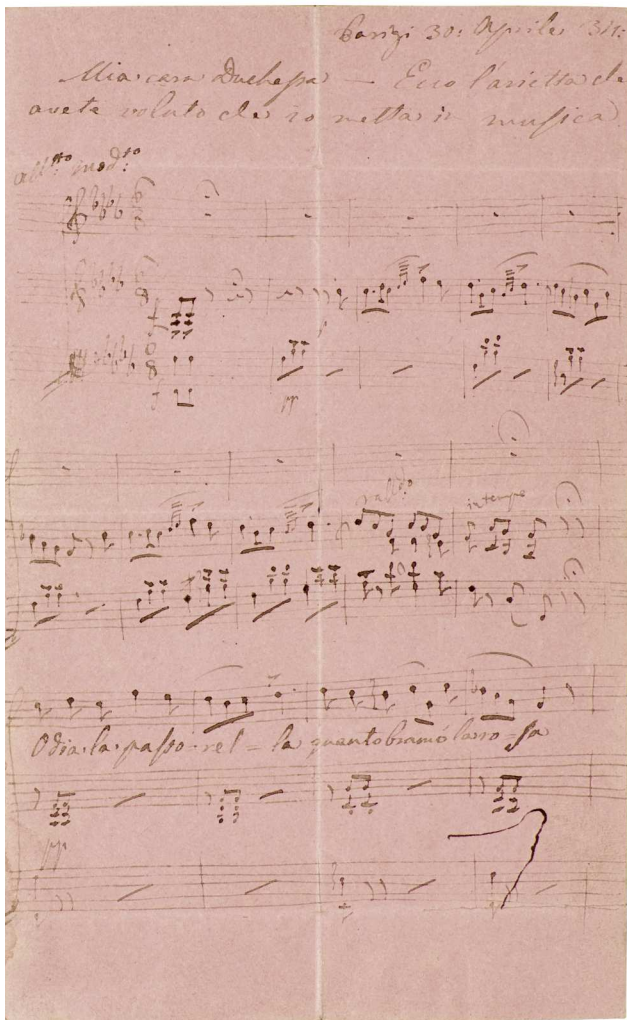 Parigi 30: Aprile 34:
Mia cara Duchessa — Ecco l'arietta che
avete voluto che io metta in musica
all.tto mod.to
pp
rall.do
in tempo
Odia la pasto-rel-la quanto bramò la ro-sa
pp